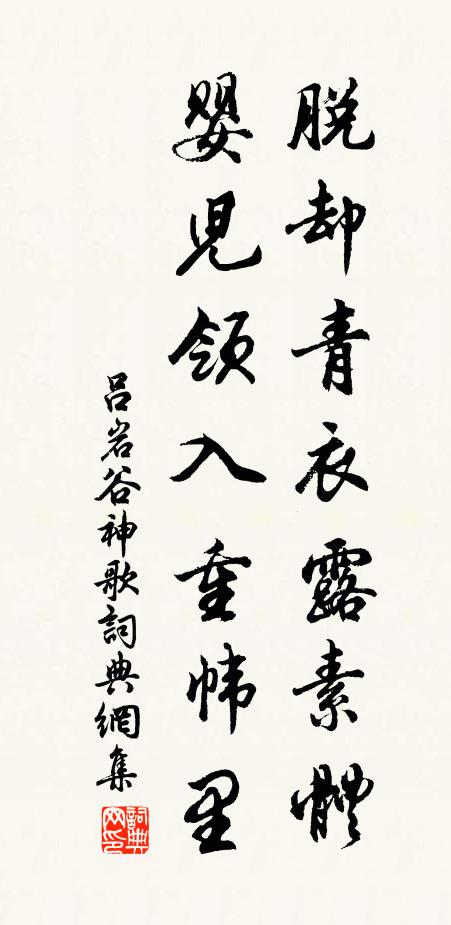 脱却青衣露素體
嬰児領入重帏里
吕岩谷神歌詞典網集
詞典网印